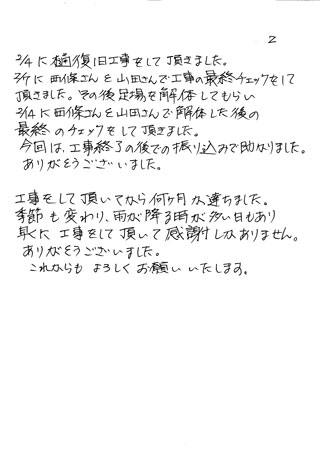 2
2/4に樋復旧工事をして頂きました。
2/9に西條さんと山田さんで工事の最終チェックをして
頂きました。その後足場を解体してもらい
2/14に西條さんと山田さんで解体した後の
最終のチェックをして頂きました。
今回は、工事終了の後での振り込みで助かりました。
ありがとうございました。
工事をして頂いてから何ヶ月か達ちました。
季節も変わり、雨が降る時が多い日もあり
早くに工事をして頂いて感謝しかありません。
ありがとうございました。
これからもよろしくお願いいたします。